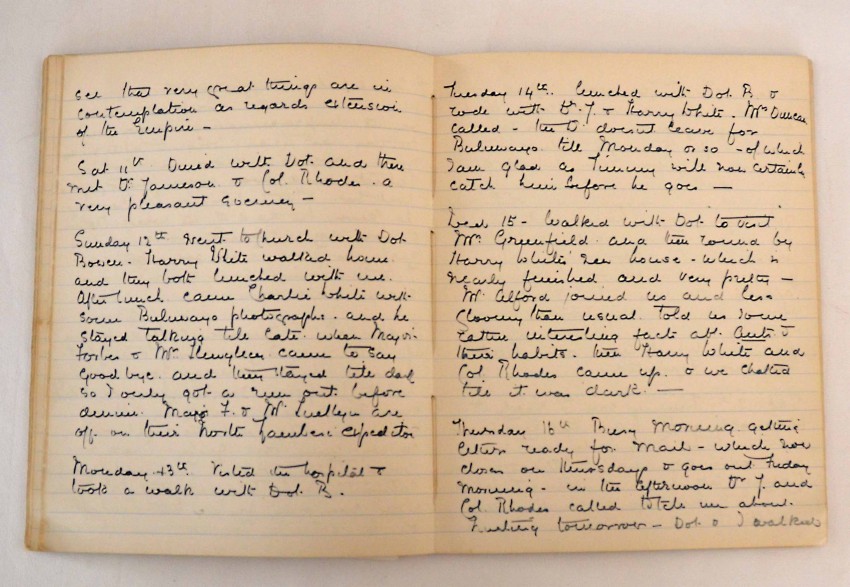 see that very great things are in
contemplation as regards extension
of the Empire -
Sat 11th. Dined with Dot and there
met Dr Jameson & Col. Rhodes. a
very pleasant evening -
Sunday 12th went to church with Dot
Bowen - Harry White walked home
and they both lunched with me.
After lunch came Charlie White with
some Buluwayo photographs. and he
stayed talking till late. when Major
Forbes & Mr came to say
Goodbye. and they stayed till dark
so I only got a run out before
dinner. Major F. & Mr are
off on their North Zambesi expedition
Monday 13th. Visited the hospital &
took a walk with Dot B.
Tuesday 14th. lunched with Dot. B. &
rode with Dr. J. & Harry White. Mrs Duncan
called - the Dr doesnt leave for
Buluwayo till Monday or so - of which
I am glad as Timmy will now certainly
catch him before he goes -
Wed. 15 - Walked with Dot to visit
Mrs Greenfield. and then round by
Harry White's new house - which is
nearly finished and very pretty -
Mr. Alford joined us and less
than usual told us some
rather interesting facts abt. Ants &
their habits. then Harry White and
Col. Rhodes came up. & we chatted
till it was dark. -
Thursday 16th Busy morning getting
letters ready for mail - which now
closes on Thursdays & goes out Friday
morning - in the afternoon Dr J. and
Col. Rhodes called to tell me about
tomorrow - Dot & I walked